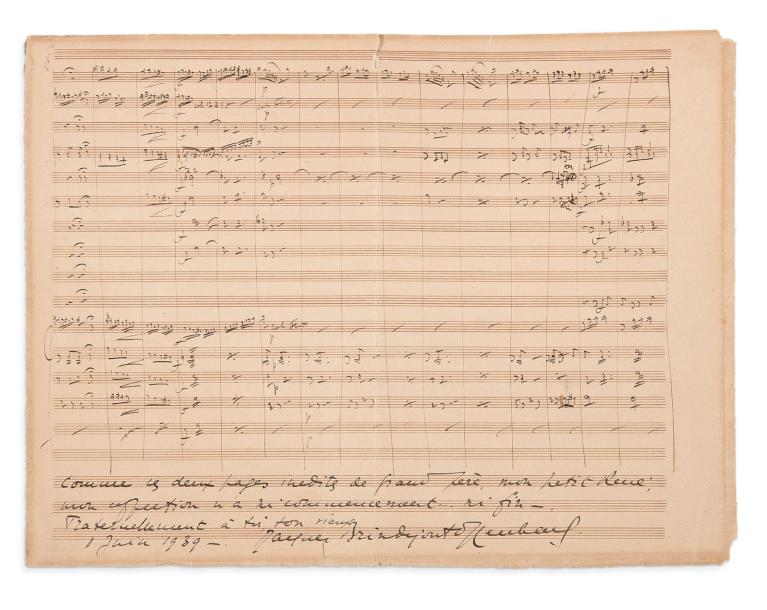 Comme ces deux pages inédites de Grand père, mon petit René,
mon affection n'a ni commencement.. ni fin —.
Fraternellement à toi, ton vieux
1 Juin 1939 —. Jacques Brindejont Offenbach.